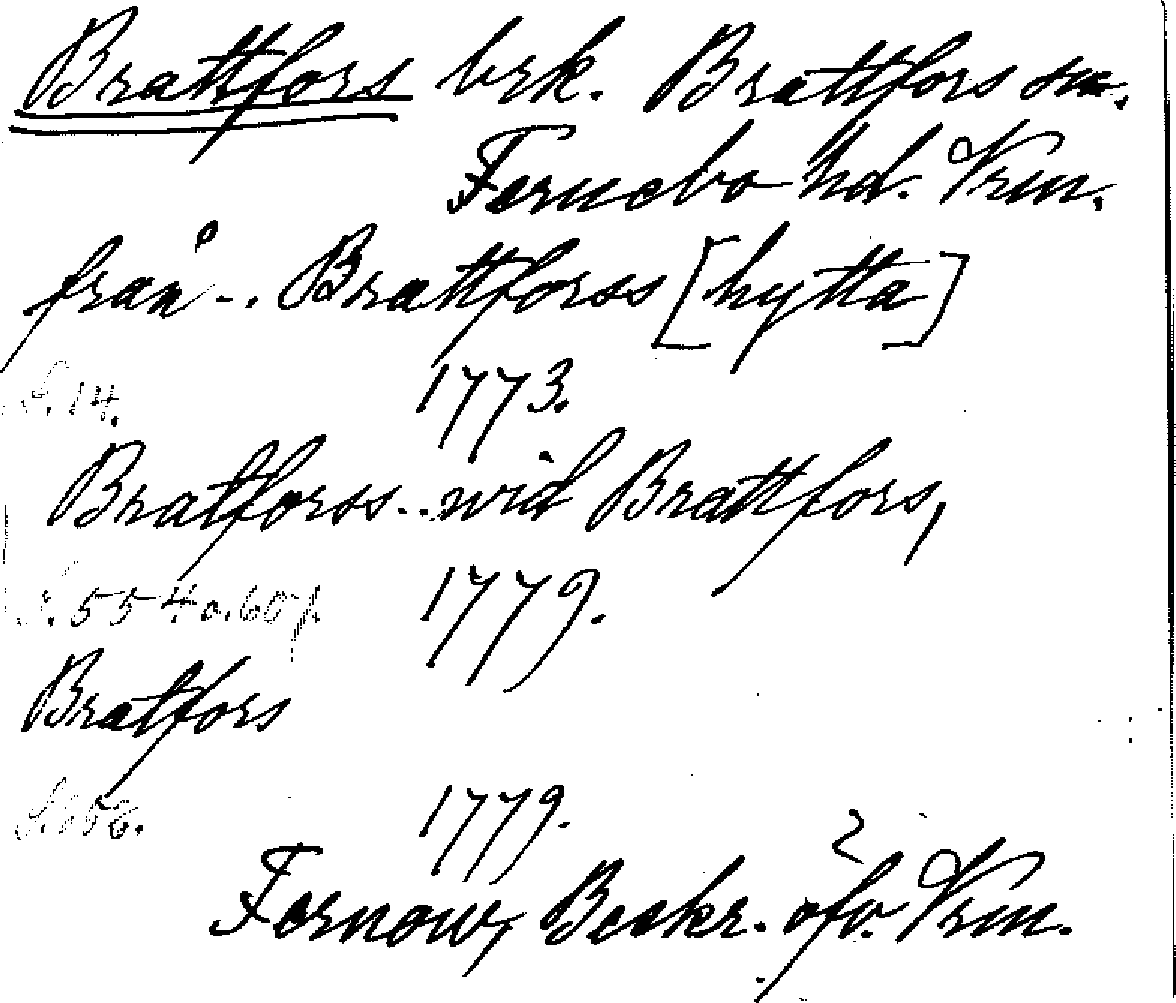 Brattfors brk. Brattfors sn.
Fernebo hd. Vrm.
från -. Brattforss [hytta]
S. 14. 1773.
Bratforss.. wid Brattfors,
S. 554 o. 607. 1779.
Bratfors
1779.
Fernow, Beskr. öfv. Vrm.